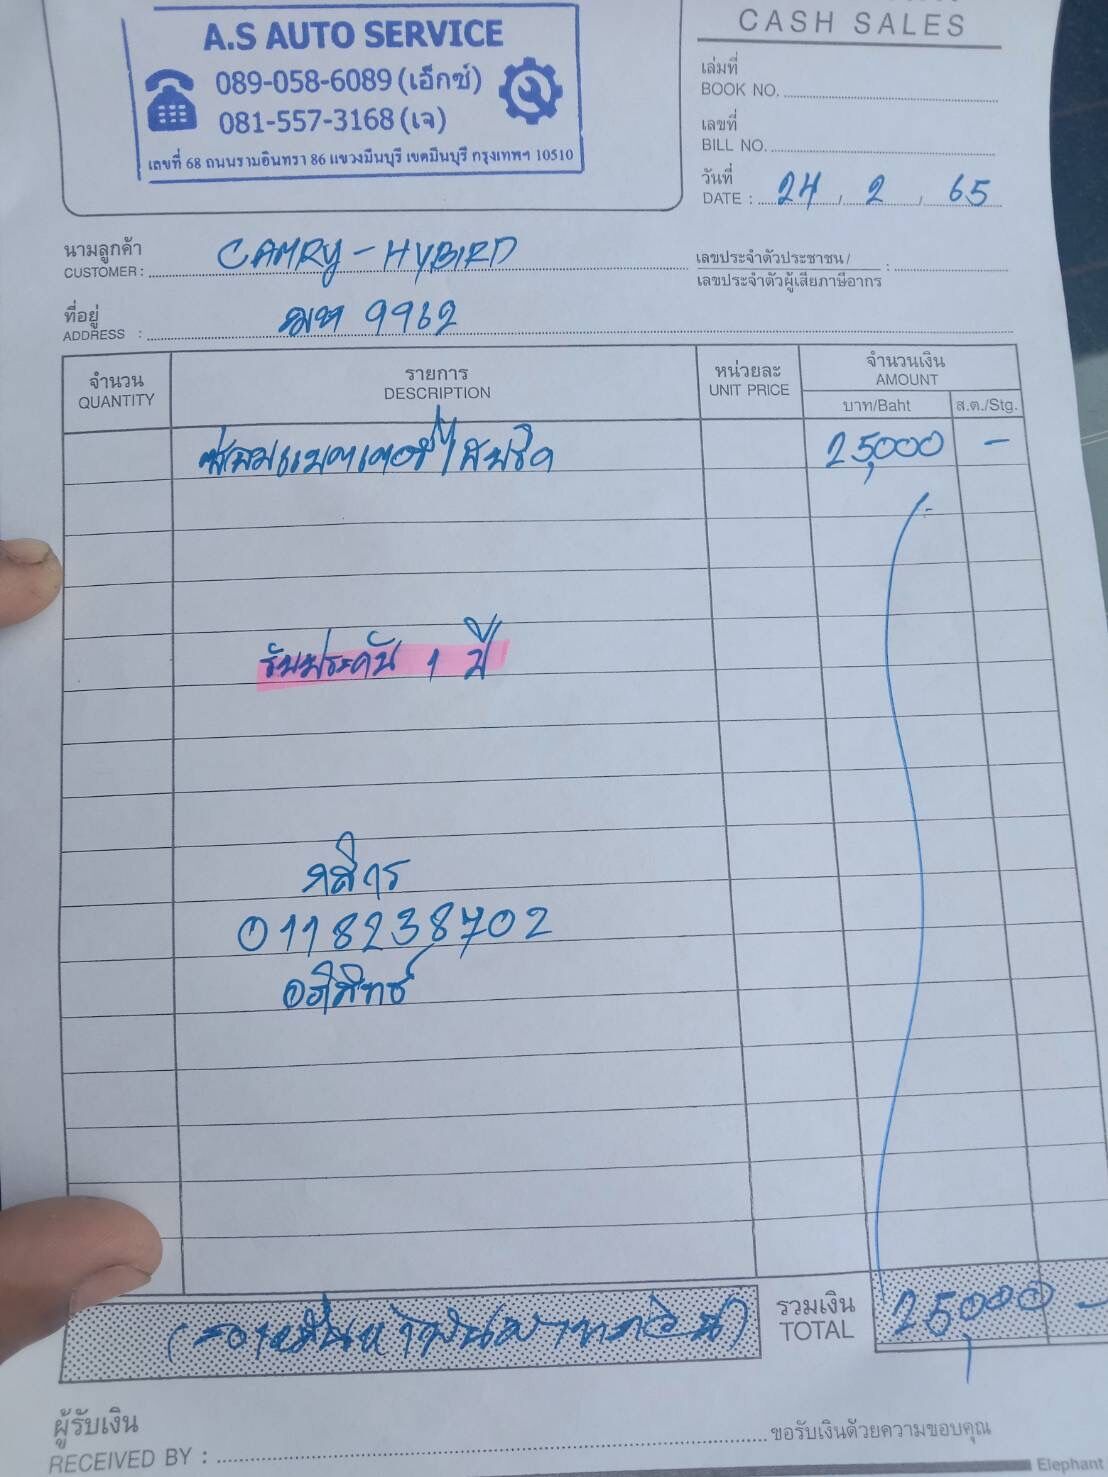 A.S AUTO SERVICE
089-058-6089 (เอ็กซ์)
081-557-3168 (เจ)
เลขที่ 68 ถนนรามอินทรา 86 แขวงมีนบุรี เขตมีนบุรี กรุงเทพฯ 10510
CASH SALES
เล่มที่
BOOK NO.
เลขที่
BILL NO.
วันที่
DATE : 24 / 2 / 65
นามลูกค้า
CUSTOMER : CAMRY - HYBIRD
เลขประจำตัวประชาชน /
เลขประจำตัวผู้เสียภาษีอากร :
ที่อยู่
ADDRESS : 9962
จำนวน
QUANTITY
รายการ
DESCRIPTION
หน่วยละ
UNIT PRICE
จำนวนเงิน
AMOUNT
บาท/Baht
ส.ต./Stg.
ซ่อมแบตเตอรี่ไฮบริด 25,000 -
รับประกัน 1 ปี
กสิกร
0118238702
อภิสิทธ์
(สองหมื่นห้าพันบาทถ้วน)
รวมเงิน
TOTAL
25,000 -
ผู้รับเงิน
RECEIVED BY :
ขอรับเงินด้วยความขอบคุณ
Elephant